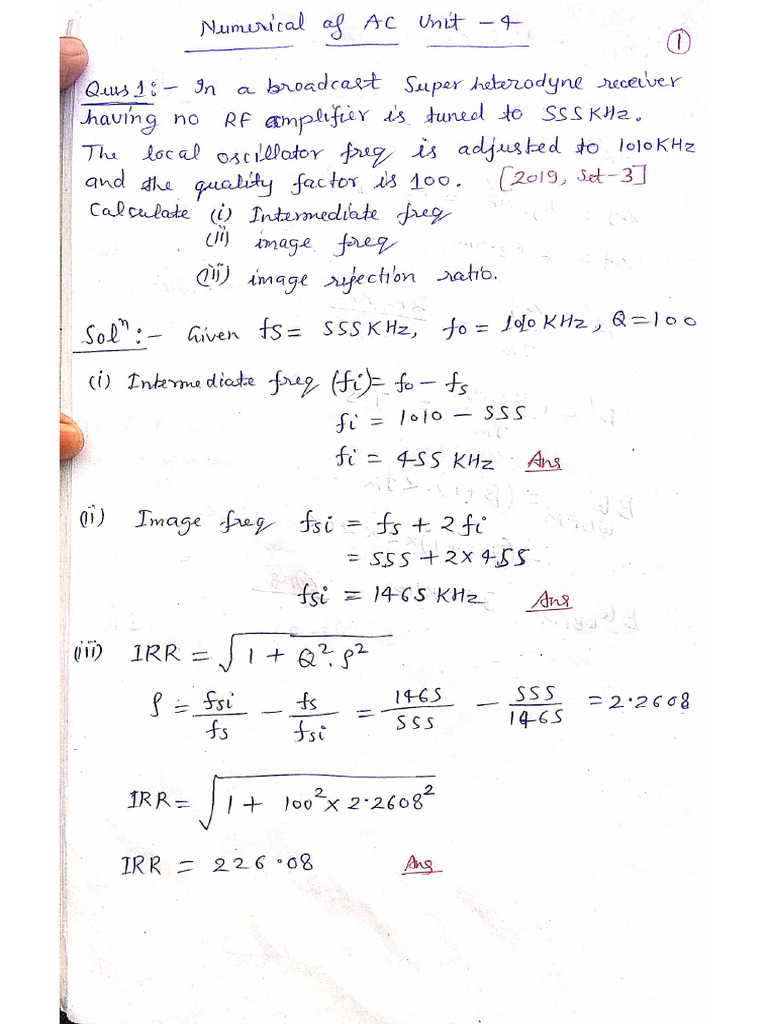 Numerical of AC Unit - 4
1
Ques 1:- In a broadcast Super heterodyne receiver
having no RF amplifier is tuned to 555 KHz.
The local oscillator freq is adjusted to 1010 KHz
and the quality factor is 100. [2019, Set-3]
Calculate (i) Intermediate freq
(ii) image freq
(iii) image rejection ratio.
Solⁿ:- Given fs = 555 KHz, fo = 1010 KHz, Q = 100
(i) Intermediate freq (fi) = fo - fs
fi = 1010 - 555
fi = 455 KHz Ans
(ii) Image freq fsi = fs + 2fi
= 555 + 2 x 455
fsi = 1465 KHz Ans
(iii) IRR = √(1 + Q².ρ²)
ρ = fsi/fs - fs/fsi = 1465/555 - 555/1465 = 2.2608
IRR = √(1 + 100² x 2.2608²)
IRR = 226.08 Ans